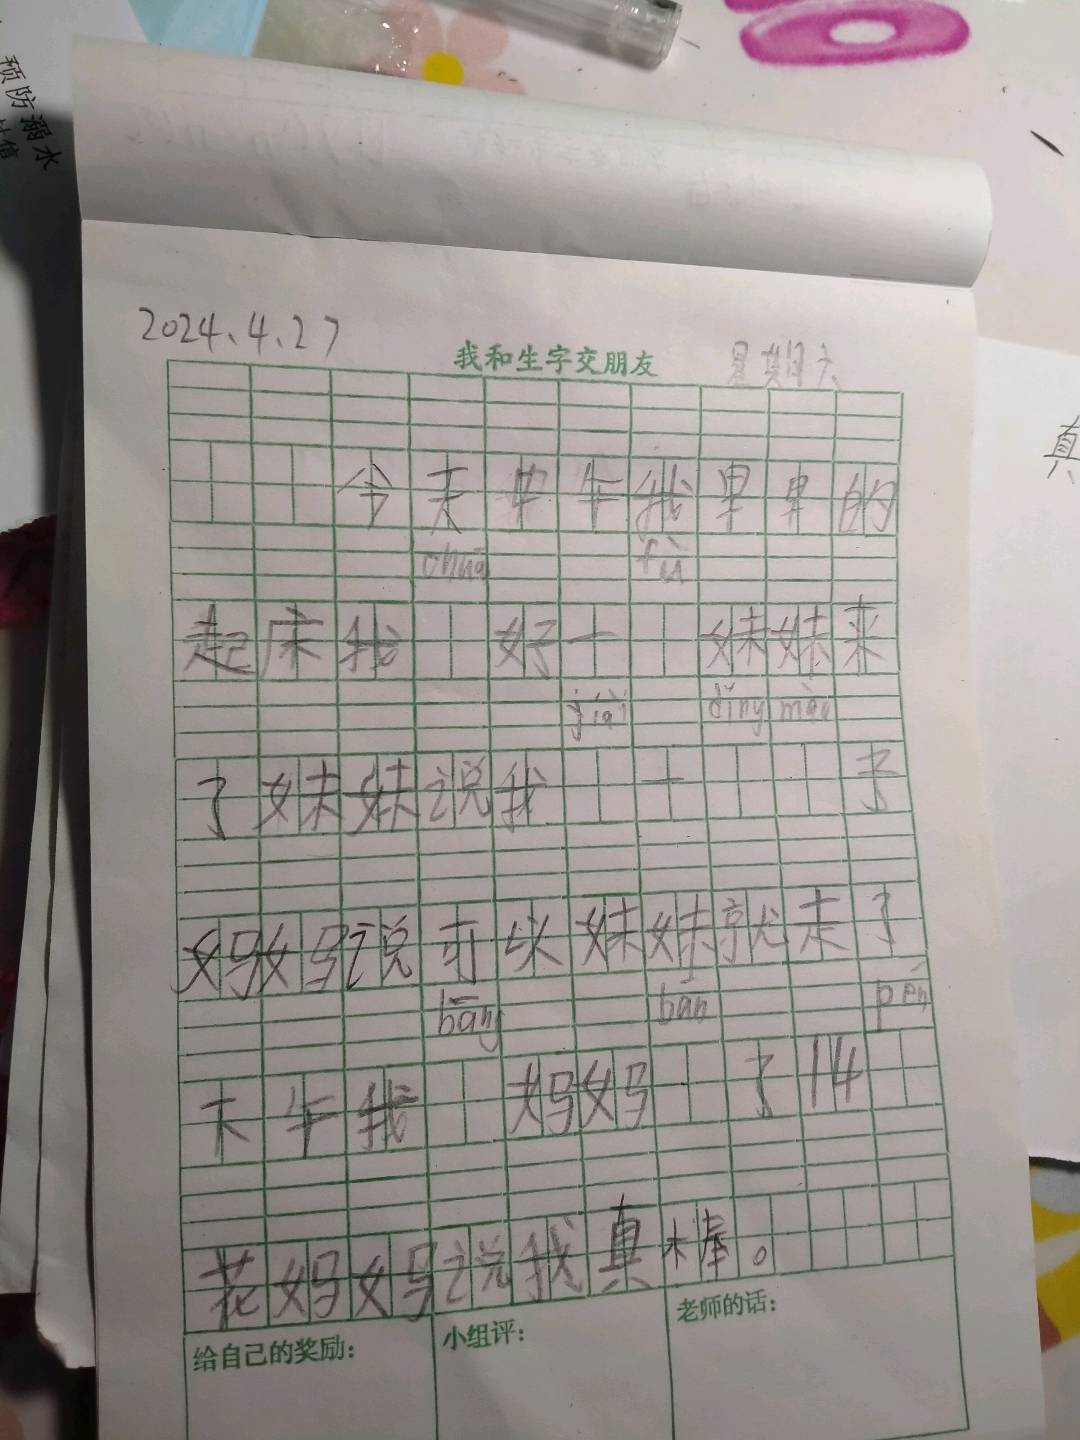 预防溺水
2024.4.27
我和生字交朋友
星期六
真
今天中午我早早的
chuā fù
起床我 好一 妹妹来
jiāi dǐng mào
了妹妹说我 一 了
妈妈说可以妹妹就走了
bāng bān pén
下午我 妈妈 了14
花妈妈说我真棒。
给自己的奖励:
小组评:
老师的话: